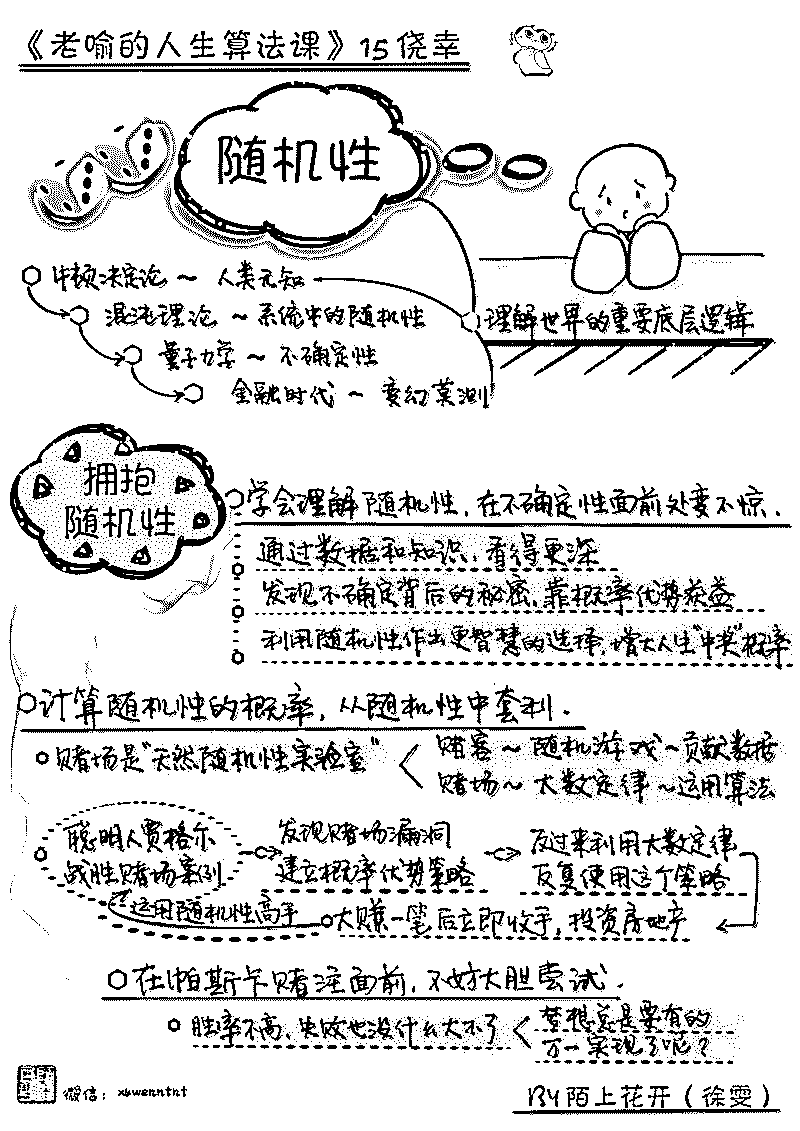 《老喻的人生算法课》15侥幸
随机性
牛顿决定论 ~ 人类无知
混沌理论 ~ 系统中的随机性
理解世界的重要底层逻辑
量子力学 ~ 不确定性
金融时代 ~ 变幻莫测
拥抱
随机性
学会理解随机性，在不确定性面前处变不惊.
通过数据和知识，看得更深
发现不确定背后的秘密，靠概率优势获益
利用随机性作出更智慧的选择，增大人生"中奖"概率
计算随机性的概率，从随机性中套利.
赌场是"天然随机性实验室"
赌客 ~ 随机游戏 ~ 贡献数据
赌场 ~ 大数定律 ~ 运用算法
聪明人贾格尔
战胜赌场案例
发现赌场漏洞
建立概率优势策略
反过来利用大数定律
反复使用这个策略
运用随机性高手
大赚一笔后立即收手，投资房地产
在帕斯卡赌注面前，不妨大胆尝试.
胜率不高，失败也没什么大不了
梦想总是要有的
万一实现了呢？
微信：xswenntnt
BY陌上花开（徐雯）